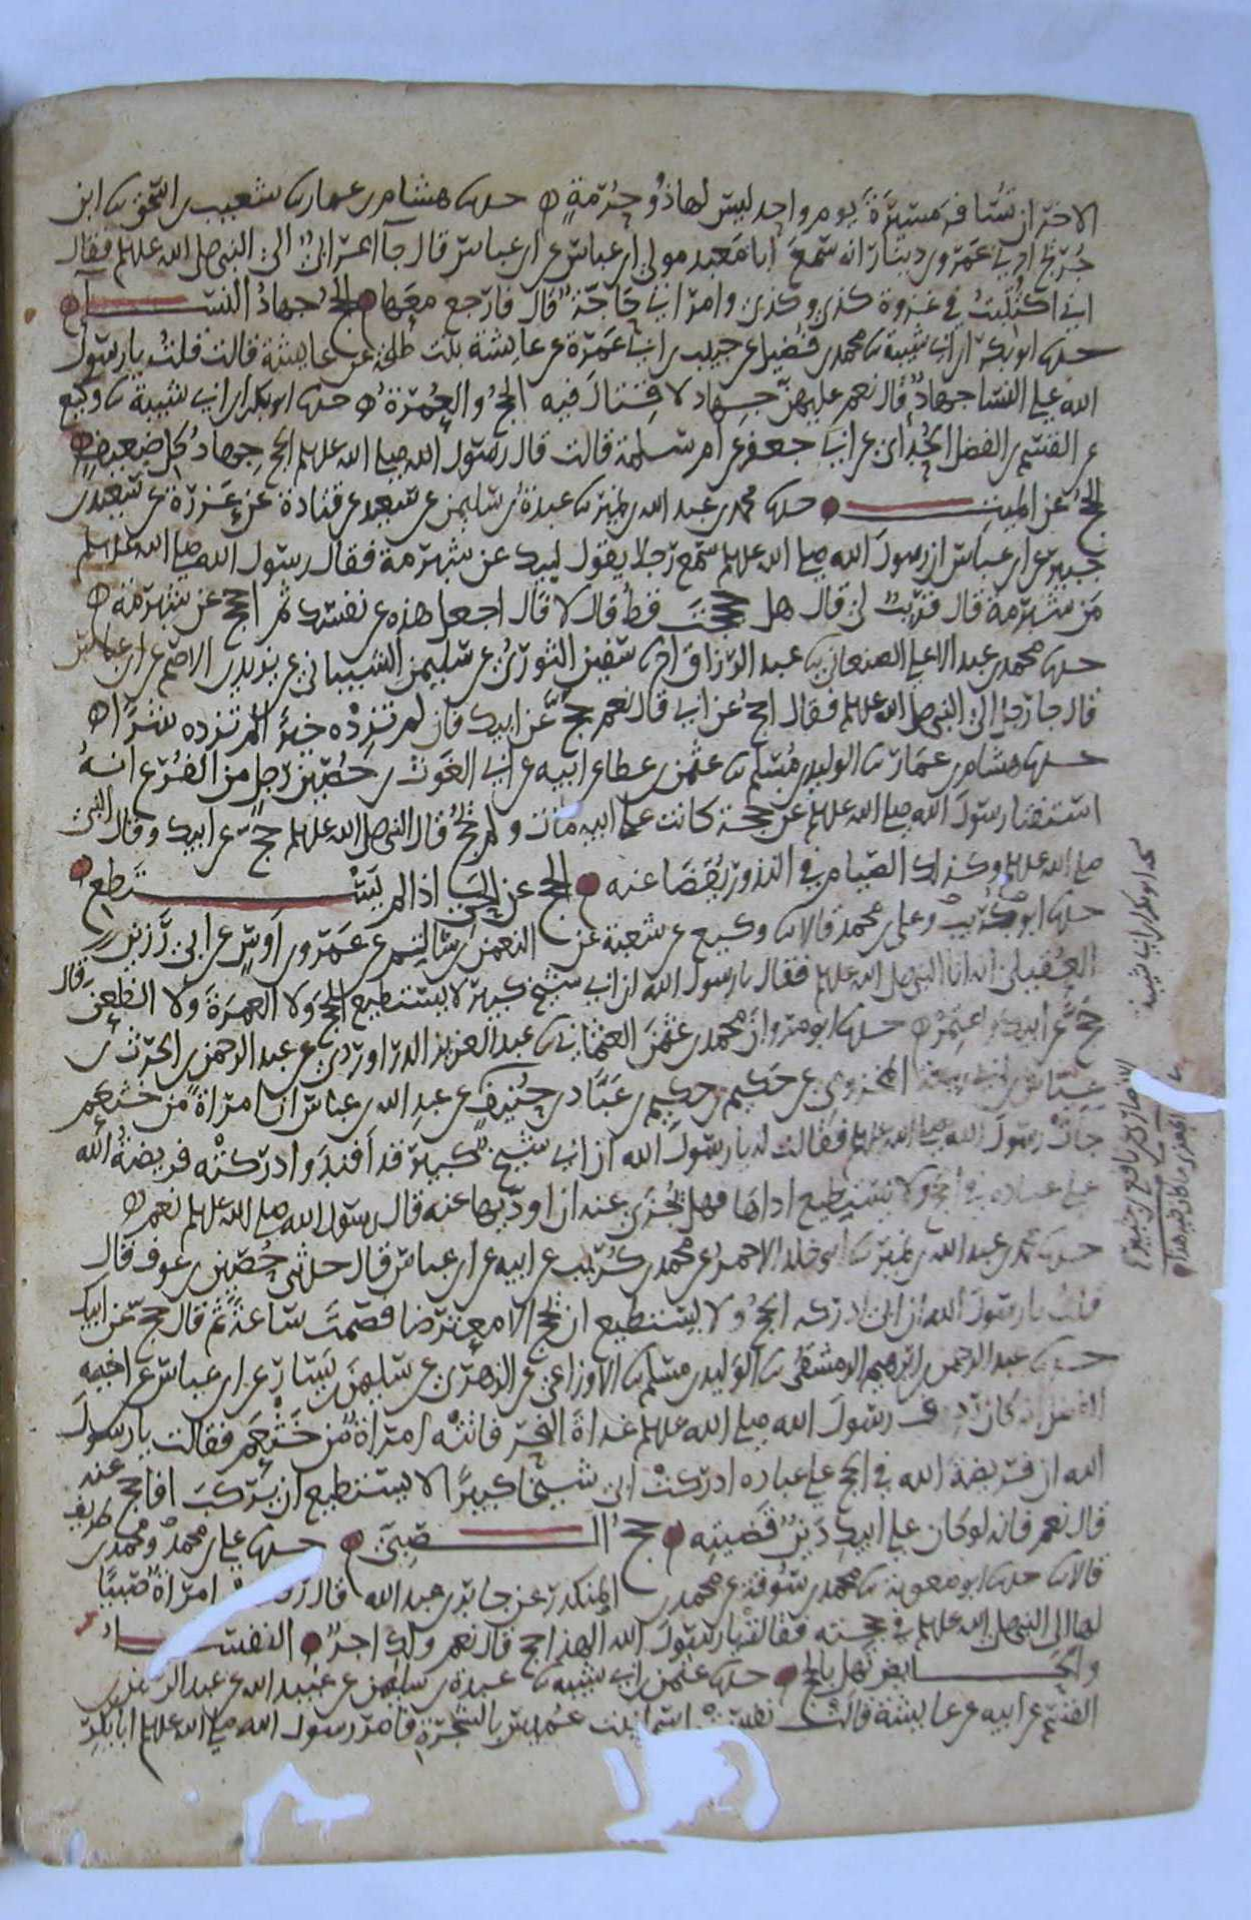 الاخر ان تسافر مسيرة يوم واحد ليس لها ذو حرمة ه حدثنا هشام بن عمار ثنا شعيب بن اسحق ثنا ابن
جريج اخبرني عمرو بن دينار انه سمع ابا معبد مولى ابن عباس عن ابن عباس قال جا اعرابي الى النبي صلى الله عليه وسلم فقال
اني اكتتبت في غزوة كذى وكذى وامراتي حاجة قال فارجع معها ه الحج جهاد النسا
حدثنا ابو بكر ابن ابي شيبة ثنا محمد بن فضيل عن حبيب بن ابي عمرة عن عايشة بنت طلحة عن عايشة قالت قلت يا رسول
الله على النسا جهاد قال نعم عليهن جهاد لا قتال فيه الحج والعمرة ه حدثنا ابو بكر ابن ابي شيبة ثنا وكيع
عن القسم بن الفضل الحداني عن ابي جعفر عن ام سلمة قالت قال رسول الله صلى الله عليه وسلم الحج جهاد كل ضعيف ه
الحج عن الميت ه حدثنا محمد بن عبد الله بن نمير ثنا عبدة بن سليمن عن سعيد عن قتادة عن عزرة عن سعيد بن
جبير عن ابن عباس ان رسول الله صلى الله عليه وسلم سمع رجلا يقول لبيك عن شبرمة فقال رسول الله صلى الله عليه وسلم
من شبرمة قال قريب لي قال هل حججت قط قال لا قال اجعل هذه عن نفسك ثم احجج عن شبرمة ه
حدثنا محمد بن عبد الاعلى الصنعاني ثنا عبد الرزاق انا سفين الثوري عن سليمن الشيباني عن يزيد بن الاصم عن ابن عباس
قال جا رجل الى النبي صلى الله عليه وسلم فقال احج عن ابي قال نعم حج عن ابيك فان لم تزده خيرا لم تزده شرا ه
حدثنا هشام بن عمار ثنا الوليد بن مسلم ثنا عثمن بن عطا عن ابيه عن ابي الغوث بن حصين رجل من الفرع انه
استفتا رسول الله صلى الله عليه وسلم عن حجة كانت على ابيه مات ولم يحج قال النبي صلى الله عليه وسلم حج عن ابيك وقال النبي
صلى الله عليه وسلم وكذلك الصيام في النذر يقضا عنه ه الحج عن الحي اذا لم يستطع ه
حدثنا ابو بكر بن ابي شيبة وعلي بن محمد قالا ثنا وكيع عن شعبة عن النعمن بن سالم عن عمرو بن اوس عن ابي رزين
العقيلي انه اتا النبي صلى الله عليه وسلم فقال يا رسول الله ان ابي شيخ كبير لا يستطيع الحج ولا العمرة ولا الظعن قال
حج عن ابيك واعتمر ه حدثنا ابو مروان محمد بن عثمن العثماني ثنا عبد العزيز الدراوردي عن عبد الرحمن بن الحرث بن
عياش بن ابي ربيعة المخزومي عن حكيم بن حكيم بن عباد بن حنيف عن عبد الله بن عباس ان امراة من خثعم
جات رسول الله صلى الله عليه وسلم فقالت له يا رسول الله ان ابي شيخ كبير قد افند وادركته فريضة الله
على عباده في الحج ولا يستطيع اداها فهل يجزئ عنه ان اوديها عنه قال رسول الله صلى الله عليه وسلم نعم ه
حدثنا محمد بن عبد الله بن نمير ثنا ابو خلد الاحمر عن محمد بن كريب عن ابيه عن ابن عباس قال حدثني حصين بن عوف قال
قلت يا رسول الله ان ابي ادركه الحج ولا يستطيع ان يحج الا معترضا فصمت ساعة ثم قال حج عن ابيك
حدثنا عبد الرحمن بن ابرهيم الدمشقي ثنا الوليد بن مسلم ثنا الاوزاعي عن الزهري عن سليمن بن يسار عن ابن عباس عن اخيه
الفضل انه كان ردف رسول الله صلى الله عليه وسلم غداة النحر فاتته امراة من خثعم فقالت يا رسول
الله ان فريضة الله في الحج على عباده ادركت ابي شيخا كبيرا لا يستطيع ان يركب افاحج عنه
قال نعم فانه لو كان على ابيك دين قضيته ه حج الصبي ه حدثنا علي بن محمد ومحمد بن طريف
قالا ثنا ابو معوية ثنا محمد بن سوقة عن محمد بن المنكدر عن جابر بن عبد الله قال رفعت امراة صبيا
لها الى النبي صلى الله عليه وسلم في حجته فقالت يا رسول الله الهذا حج قال نعم ولك اجر ه النفسا
والحايض تهل بالحج ه حدثنا عثمن بن ابي شيبة ثنا عبدة بن سليمن عن عبيد الله عن عبد الرحمن بن
القسم عن ابيه عن عايشة قالت نفست اسما بنت عميس بالشجرة فامر رسول الله صلى الله عليه وسلم ابا بكر